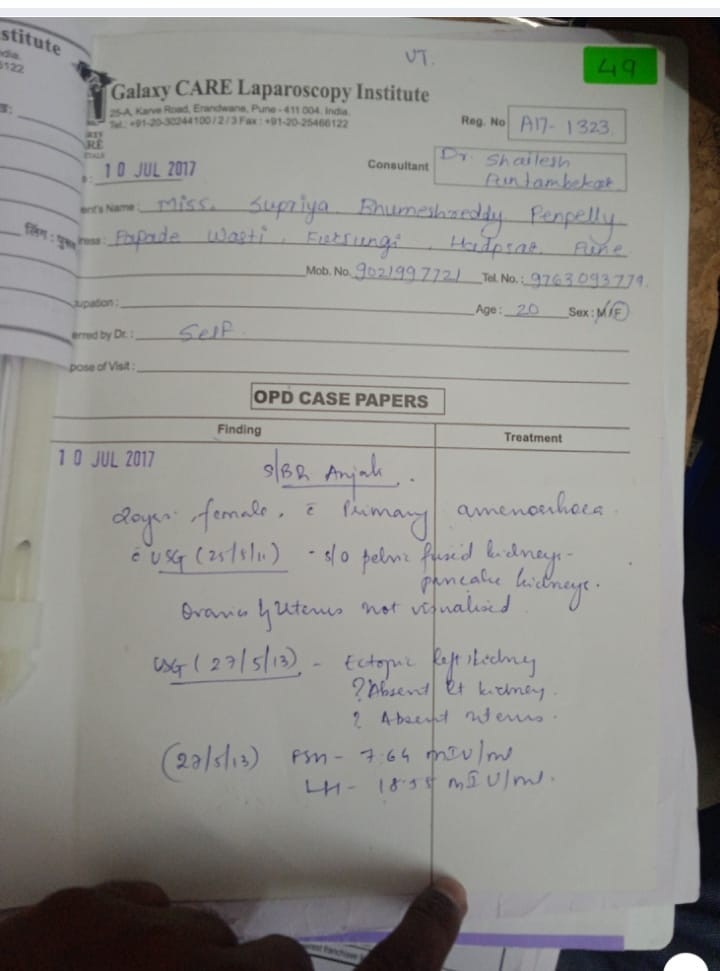 stitute
dia.
5122
UT.
49
Galaxy CARE Laparoscopy Institute
25-A, Karve Road, Erandwane, Pune - 411 004. India.
Tel.: +91-20-30244100 / 2 / 3 Fax : +91-20-25466122
Reg. No A17- 1323
10 JUL 2017
Consultant Dr. Shailesh
Puntambekar
ent's Name: Miss. Supriya Bhumeshreddy Penpelly
लिंग : पुरू
ress: Papade Wasti, Fursungi, Hadpsar, Pune
Mob. No. 9021997721 Tel. No.: 9763093779
upation: Age: 20 Sex: M/F
erred by Dr.: Self
pose of Visit:
OPD CASE PAPERS
Finding Treatment
10 JUL 2017 S/B Dr Anjali
20yrs. female, c̄ Primary amenorrhoea
c̄ USG (25/8/11) - s/o pelvic fused kidneys-
pancake kidneys.
Ovaries & Uterus not visualised
USG (27/5/13) - Ectopic left kidney
? Absent Rt kidney.
? Absent uterus.
(27/5/13) FSH - 7.64 mIU/ml
LH - 18.55 mIU/ml.